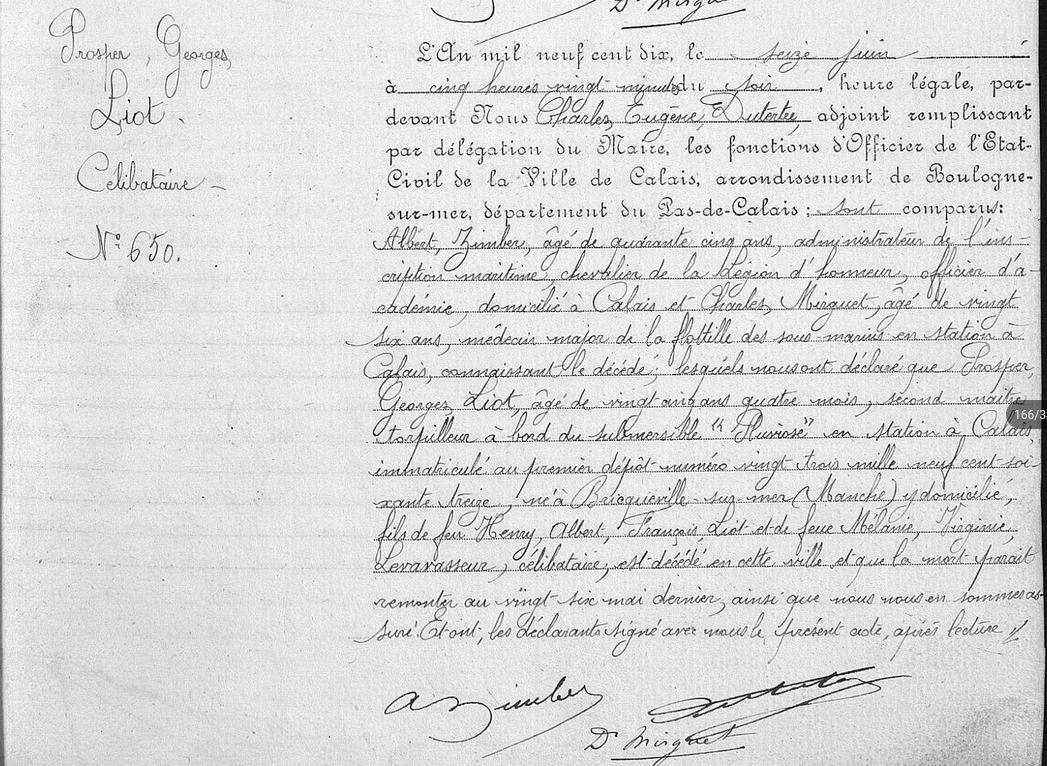 Dr Mirguet
Prosper, Georges,
Liot.
Célibataire -
N° 650.
L'An mil neuf cent dix, le seize juin
à cinq heures vingt minutes du soir, heure légale, par-
devant Nous Charles, Eugène, Dutertre, adjoint remplissant
par délégation du Maire, les fonctions d'Officier de l'Etat-
Civil de la Ville de Calais, arrondissement de Boulogne-
sur-mer, département du Pas-de-Calais ; sont comparus:
Albert, Zimber, âgé de quarante cinq ans, administrateur de l'ins-
cription maritime, chevalier de la Légion d'honneur, officier d'a-
cadémie, domicilié à Calais et Charles, Mirguet, âgé de vingt
six ans, médecin major de la flottille des sous-marins en station à
Calais, connaissant le décédé; lesquels nous ont déclaré que Prosper,
Georges, Liot, âgé de vingt ans quatre mois, second maître
torpilleur à bord du submersible "Pluviose" en station à Calais
immatriculé au premier dépôt numéro vingt trois mille neuf cent soi-
xante treize, né à Bricqueville-sur-mer (Manche) y domicilié,
fils de feu Henry, Albert, François, Liot et de feue Mélanie, Virginie,
Levavasseur, célibataire, est décédé en cette ville et que la mort parait
remonter au vingt six mai dernier, ainsi que nous nous en sommes as-
suré. Et ont, les déclarants signé avec nous le présent acte, après lecture //
A Zimber
Dr Mirguet
166/3